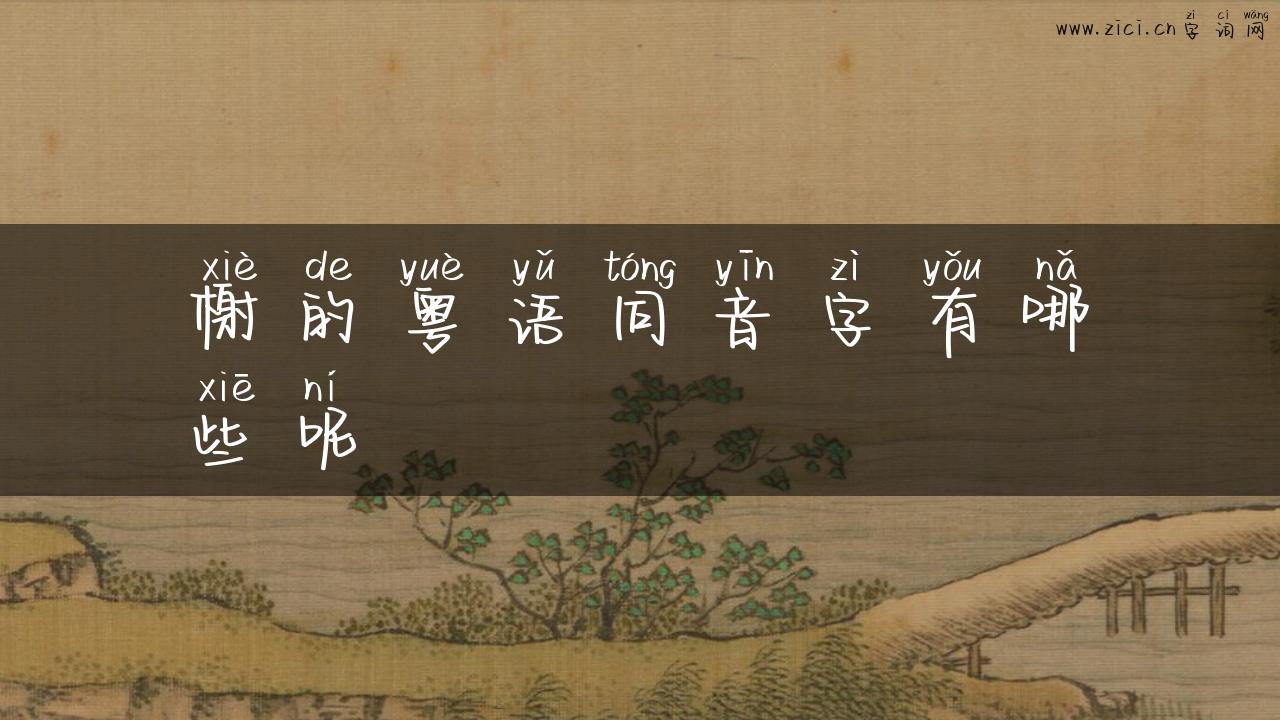 zì cí wǎng
www.zici.cn 字词网
xiè de yuè yǔ tóng yīn zì yǒu nǎ
榭的粤语同音字有哪
xiē ní
些呢